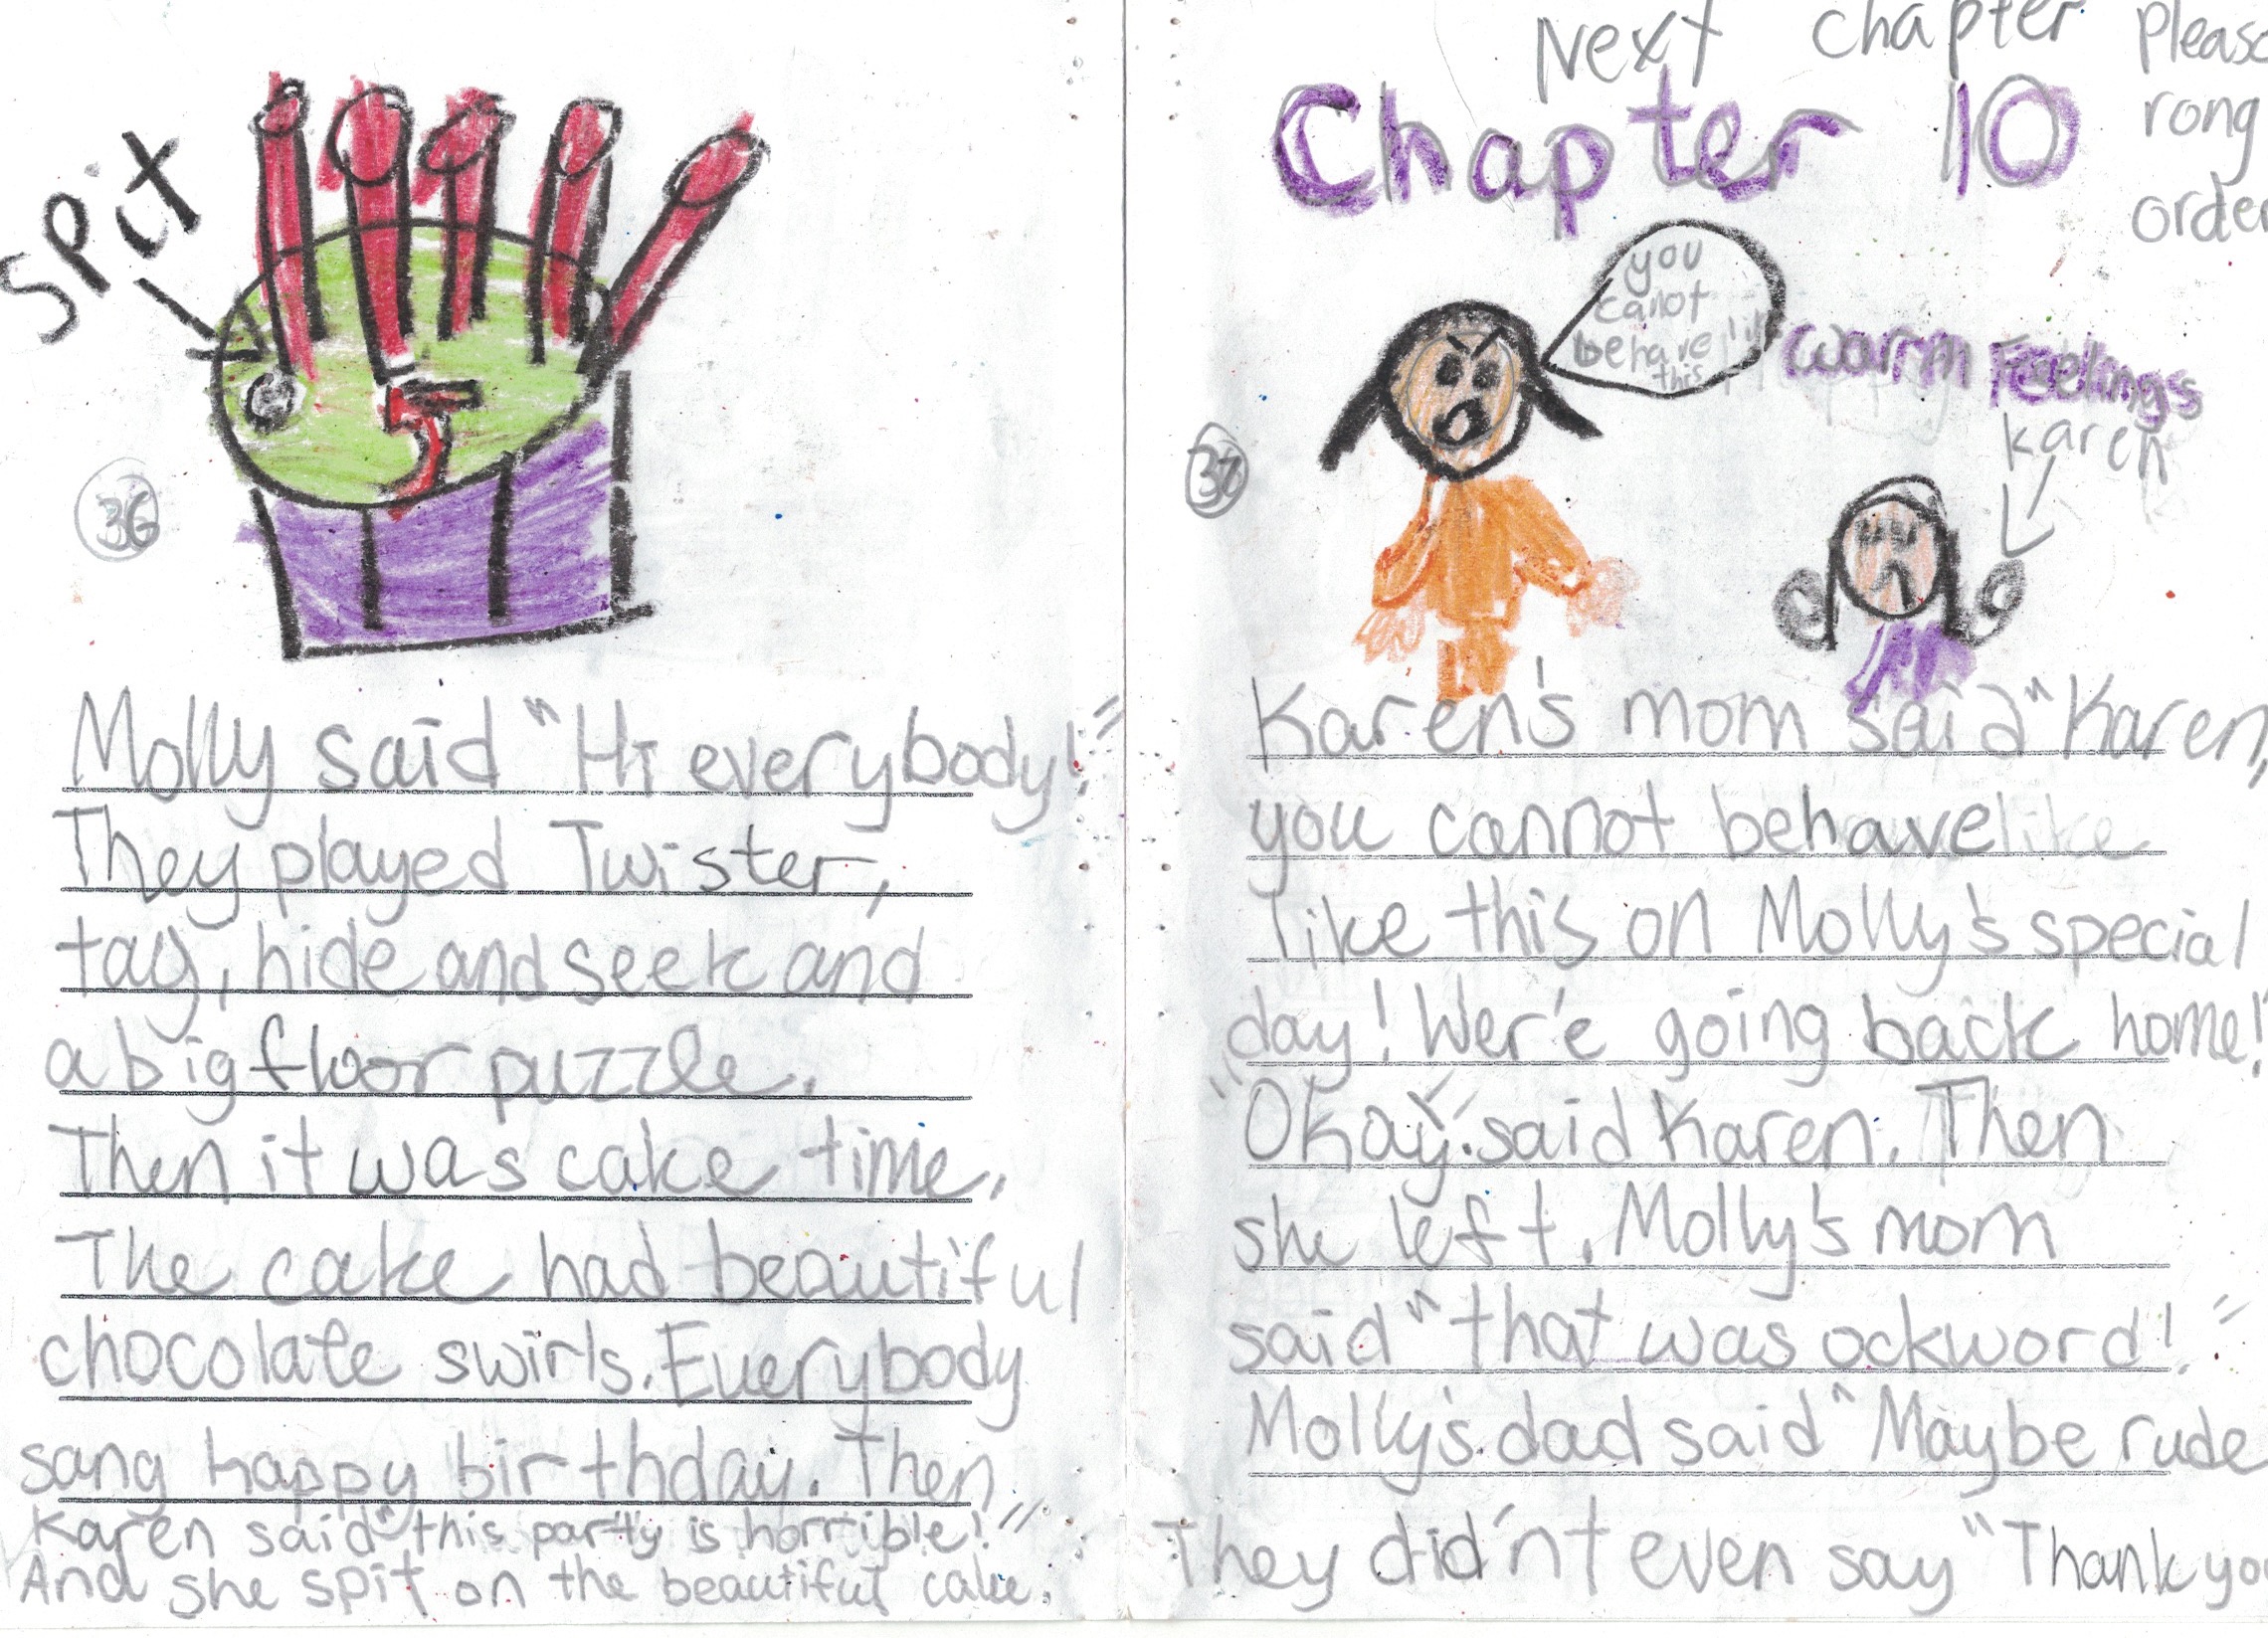 SPit
36
Molly said "Hi everybody!"
They played Twister,
tag, hide and seek and
a big floor puzzle.
Then it was cake time.
The cake had beautiful
chocolate swirls. Everybody
sang happy birthday. Then
Karen said "this party is horrible!"
And she spit on the beautiful cake.
Next chapter
Please
rong
order
Chapter 10
you
canot
behave lik
this
warm Feelings
karen
37
Karen's mom said "Karen,
you cannot behave like
like this on Molly's special
day! Wer'e going back home!"
"Okay". said Karen. Then
she left. Molly's mom
said "that was ockword!"
Molly's dad said "Maybe rude
They did'nt even say "Thank you